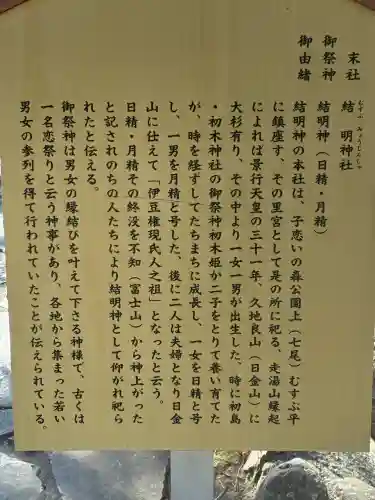 末社 結明神社
むすぶ みょうじんしゃ
御祭神 結明神(日精・月精)
御由緒 結明神の本社は、子恋いの森公園上(七尾)むすぶ平
に鎮座す、その里宮として是の所に祀る、走湯山縁起
によれば景行天皇の三十一年、久地良山(日金山)に
大杉有り、その中より一女一男が出生した、時に初島
・初木神社の御祭神初木姫が二子をとりて養い育てた
が、時を経ずしてたちまちに成長し、一女を日精と号
し、一男を月精と号した、後に二人は夫婦となり日金
山に仕えて「伊豆権現氏人之祖」となったと云う。
日精・月精その終没を不知(富士山)から神上がった
と記されのちの人たちにより結明神として仰がれ祀ら
れたと伝える。
御祭神は男女の縁結びを叶えて下さる神様で、古くは
一名恋祭りと云う神事があり、各地から集まった若い
男女の参列を得て行われていたことが伝えられている。